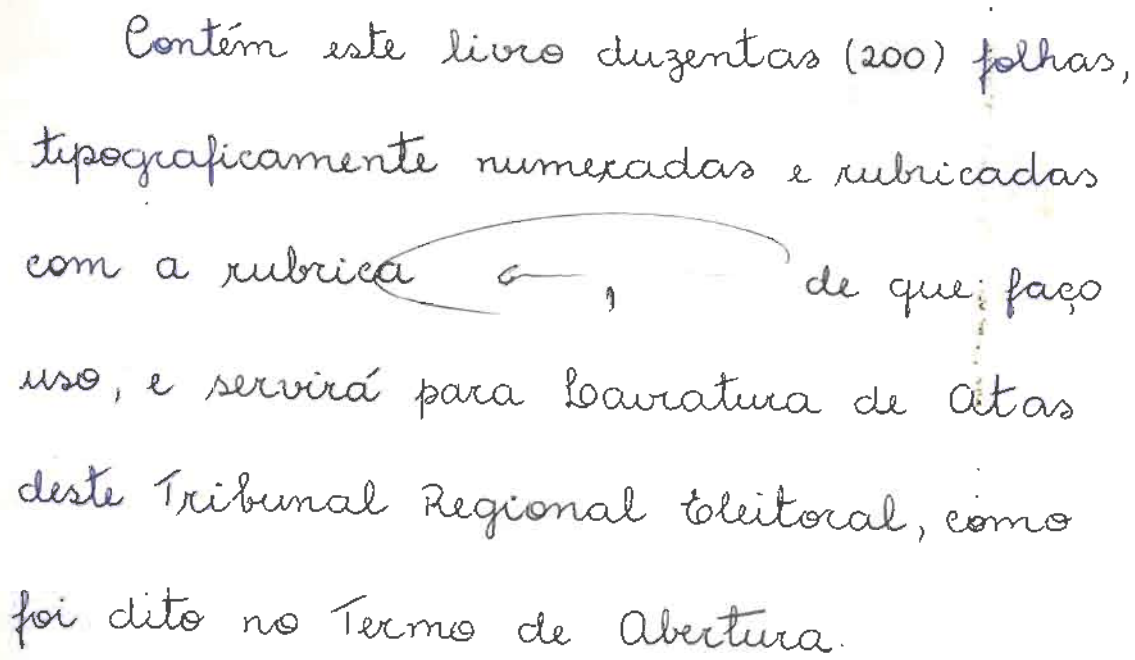 Contém este livro duzentas (200) folhas,
tipograficamente numeradas e rubricadas
com a rubrica , de que faço
uso, e servirá para Lavratura de Atas
deste Tribunal Regional Eleitoral, como
foi dito no Termo de Abertura.